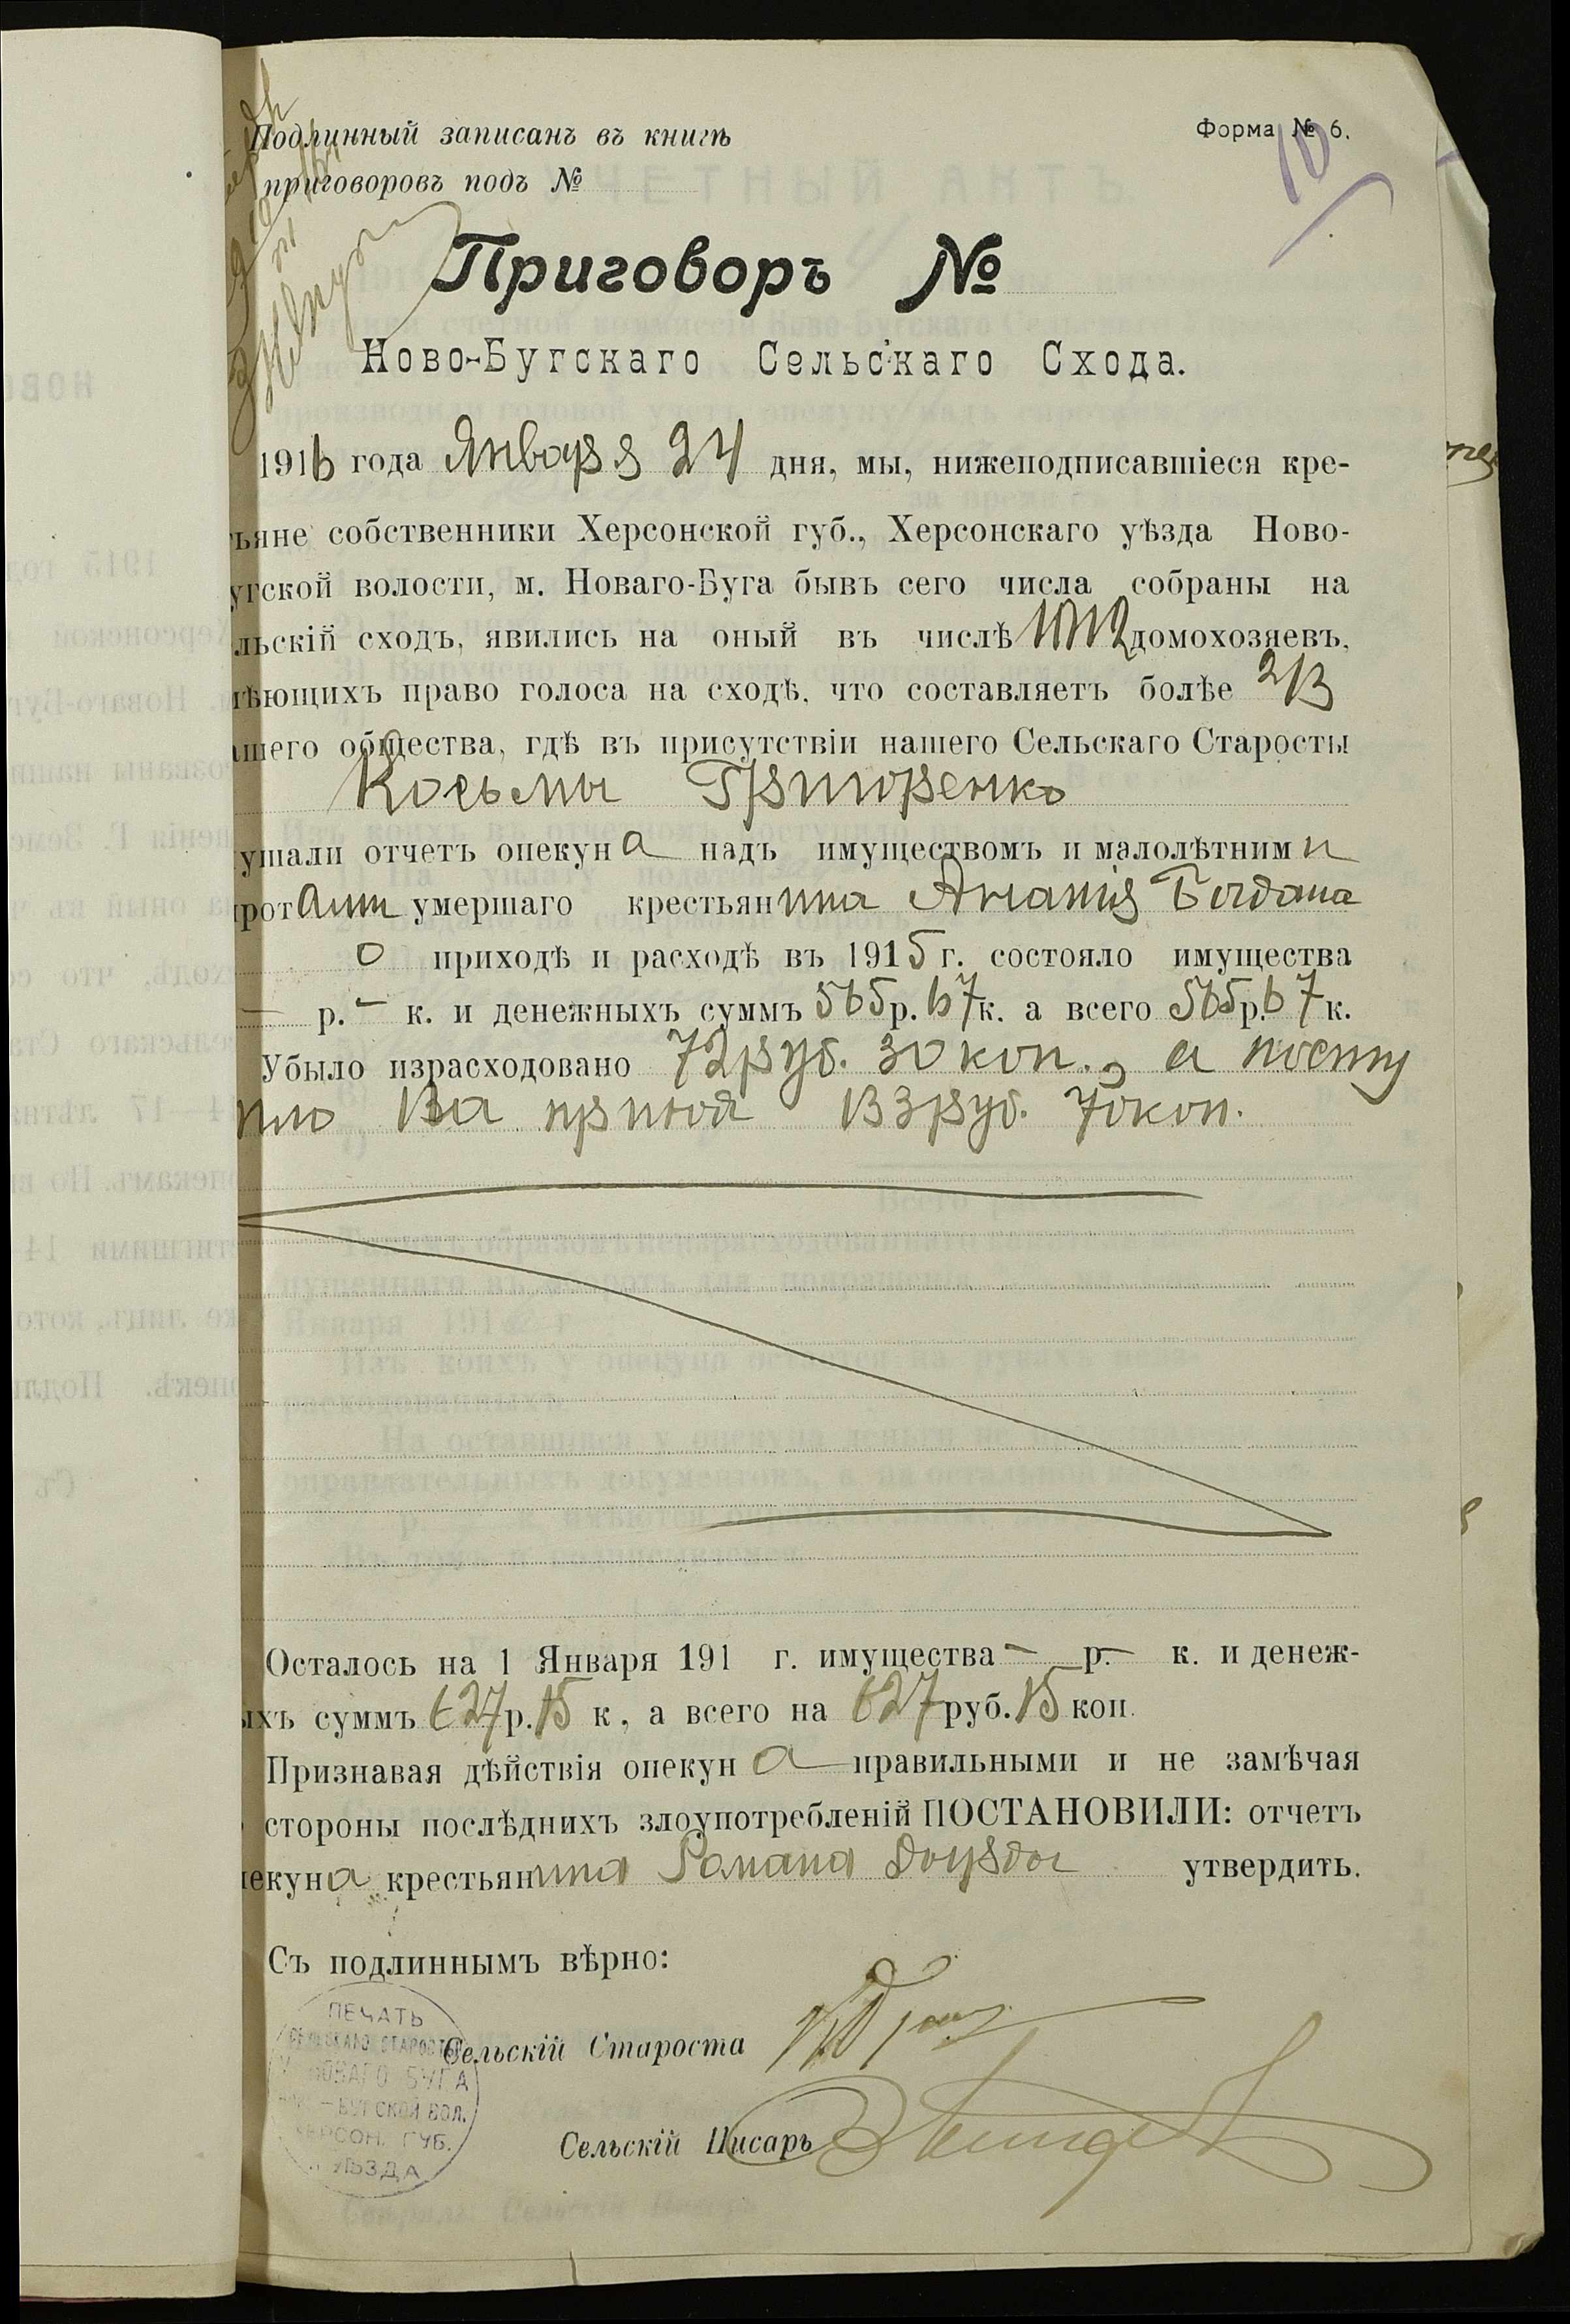 Подлинный записанъ въ книгѣ
Форма № 6.
10
приговоровъ подъ №
Приговоръ №
Ново-Бугскаго Сельскаго Схода.
1916 года Января 24 дня, мы, нижеподписавшіеся кре-
тьяне собственники Херсонской губ., Херсонскаго уѣзда Ново-
угской волости, м. Новаго-Буга бывъ сего числа собраны на
льскій сходъ, явились на оный въ числѣ домохозяевъ,
ѣющихъ право голоса на сходѣ, что составляетъ болѣе 2/3
ашего общества, гдѣ въ присутствіи нашего Сельскаго Старосты
Косьмы
ушали отчетъ опекуна надъ имуществомъ и малолѣтними
ротами умершаго крестьянина Ананія Богдана
о приходѣ и расходѣ въ 1915 г. состояло имущества
— р. — к. и денежныхъ суммъ 565 р. 67 к. а всего 565 р. 67 к.
Убыло израсходовано 72 руб. 30 коп., а посту
пило на приход 133 руб. 78 коп.
Осталось на 1 Января 191 г. имущества — р. — к. и денеж-
ыхъ суммъ 627 р. 15 к, а всего на 627 руб. 15 коп.
Признавая дѣйствія опекуна правильными и не замѣчая
стороны послѣднихъ злоупотребленій ПОСТАНОВИЛИ: отчетъ
екуна крестьянина Романа утвердить.
Съ подлиннымъ вѣрно:
Сельскій Староста
Сельскій Писарь
ПЕЧАТЬ
СЕЛЬСКАГО СТАРОСТЫ
НОВАГО БУГА
БУГСКОЙ ВОЛ.
ХЕРСОН. ГУБ.
УѢЗДА